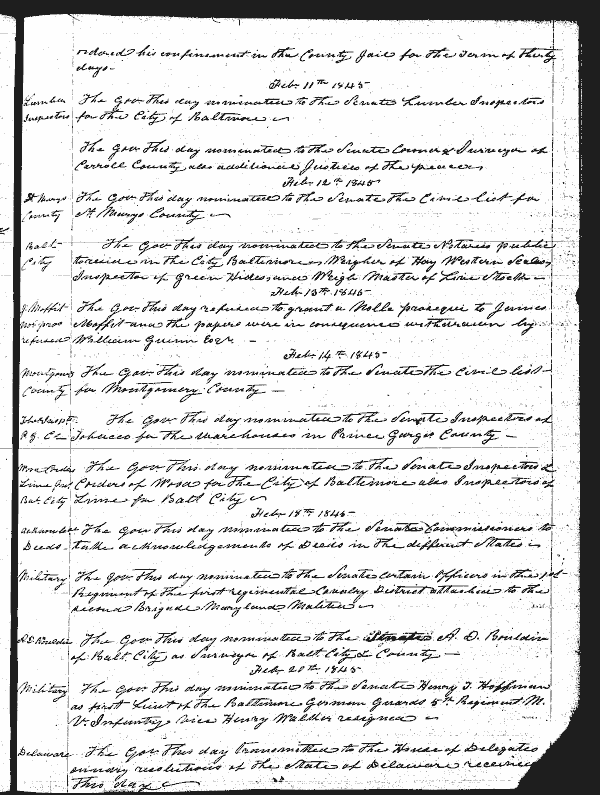 ordered his confinement in the County Jail for the Term of thirty
days-
Feb. 11th 1845
Lumber Inspectors
The Gov. this day nominated to the Senate Lumber Inspectors
for the City of Baltimore
The Gov. this day nominated to the Senate Coroner & Surveyor of
Carroll County also additional Justices of the peace
Feb. 12th 1845
St Marys County
The Gov. this day nominated to the Senate the Civil list for
St. Marys County
Balt City
The Gov. this day nominated to the Senate Notaries public
to reside in the City Baltimore Weigher of Hay Western Scales
Inspector of Green Hides and Weigh Master of Live Stock -
Feb. 13th 1845
J Moffit nol pros refused
The Gov. this day refused to grant a Nolle prosequi to James
Moffit and the papers were in consequence withdrawn by
William Guinn Esqr -
Feb. 14th 1845
Montgomy County
The Gov. this day nominated to the Senate the Civil list
for Montgomery County -
Tbo. Insps P. G. C.
The Gov. this day nominated to the Senate Inspectors of
Tobacco for the warehouses in Prince Georges County -
Wood Corders Lime Insp Bal. City
The Gov. this day nominated to the Senate Inspectors &
Corders of Wood for the City of Baltimore also Inspectors of
Lime for Balt City
Feb. 18th 1845
Deeds
The Gov. this day nominated to the Senate Commissioners to
take acknowledgements of Deeds in the different States
Military
The Gov. this day nominated to the Senate certain Officers in the 1st
Regiment of the first regimental Cavalry District attached to the
second Brigade Maryland Militia
A. D. Bouldin
The Gov. this day nominated to the Senate A. D. Bouldin
of Balt. City as Surveyor of Balt City & County -
Feb. 20th 1845
Military
The Gov. this day nominated to the Senate Henry T. Hoffman
as first Lieut of the Baltimore German Guards 5th Regiment M.
V. Infantry vice Henry Walker resigned
Delaware
The Gov. this day transmitted to the House of Delegates
sundry resolutions of the State of Delaware received
this day